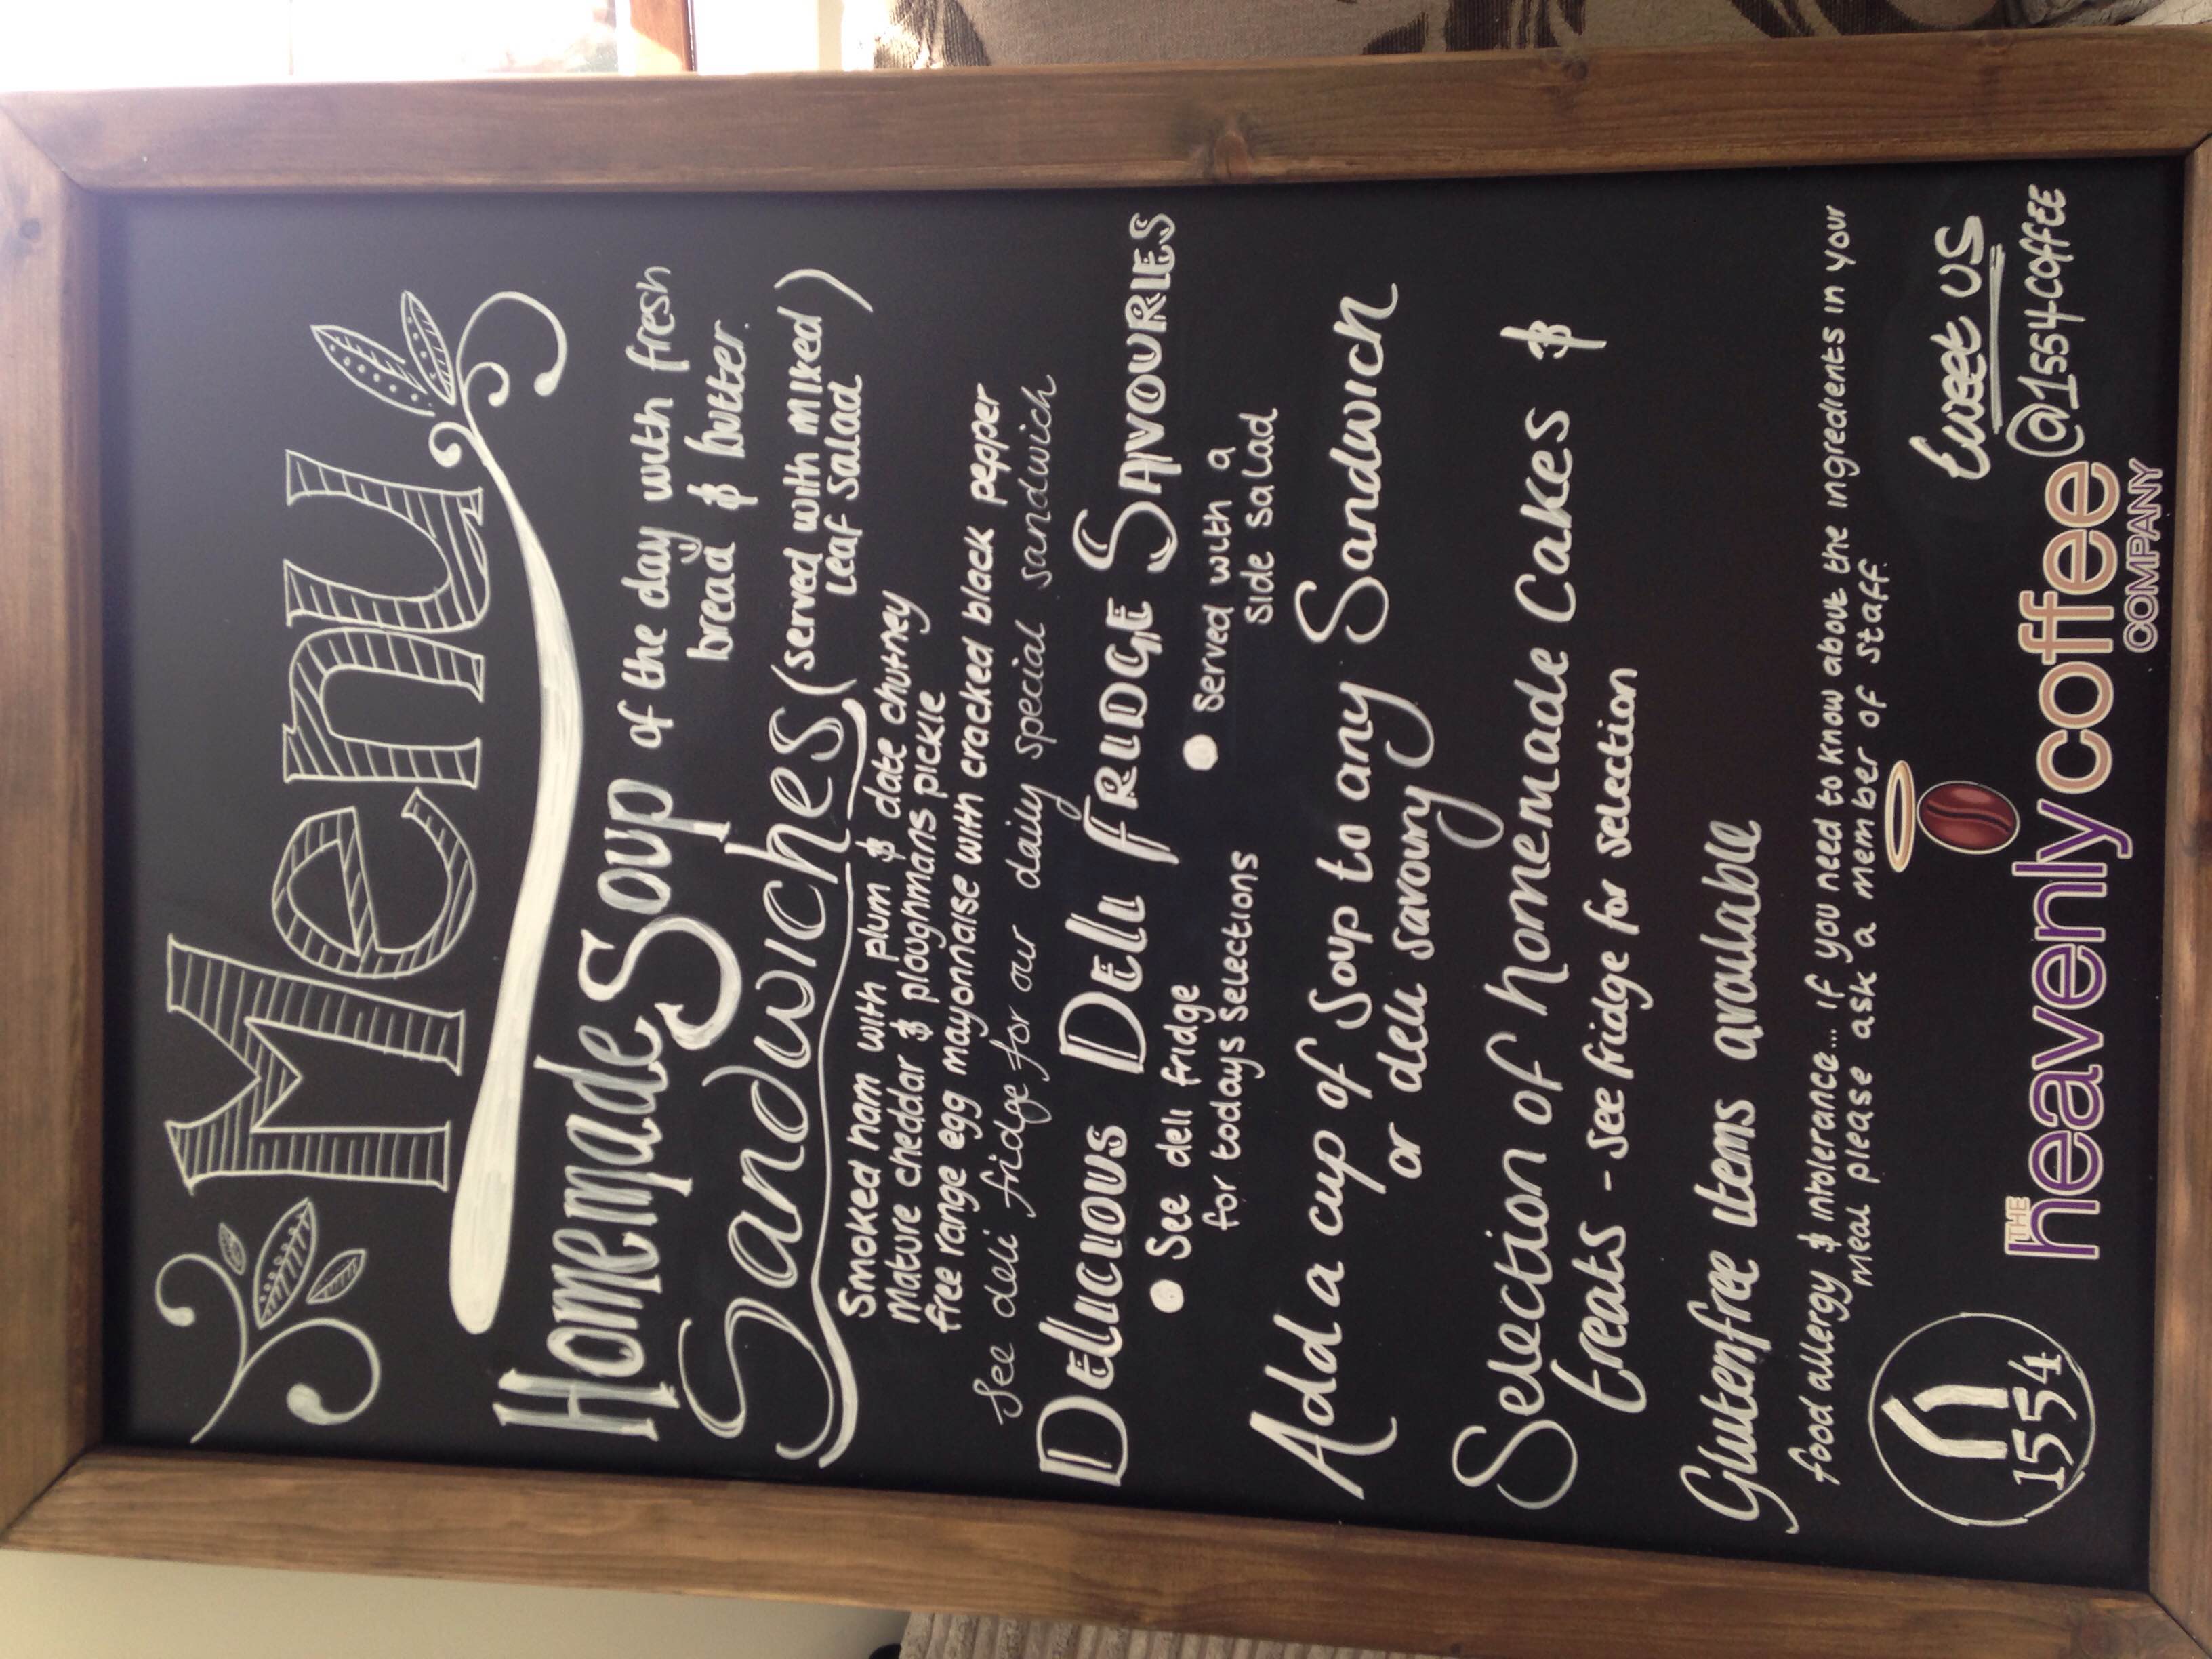 Menu
Homemade Soup of the day with fresh
bread & butter.
Sandwiches (served with mixed
leaf salad)
Smoked ham with plum & date chutney
Mature cheddar & ploughmans pickle
free range egg mayonnaise with cracked black pepper
See deli fridge for our daily special sandwich
DELICIOUS DELI FRIDGE SAVOURIES
• See deli fridge
for todays selections
• Served with a
side salad
Add a cup of Soup to any Sandwich
or deli savoury
Selection of homemade Cakes &
treats - see fridge for selection
Glutenfree items available
food allergy & intolerance... if you need to know about the ingredients in your
meal please ask a member of staff.
1554
THE
heavenly coffee
COMPANY
tweet us
@1554COFFEE